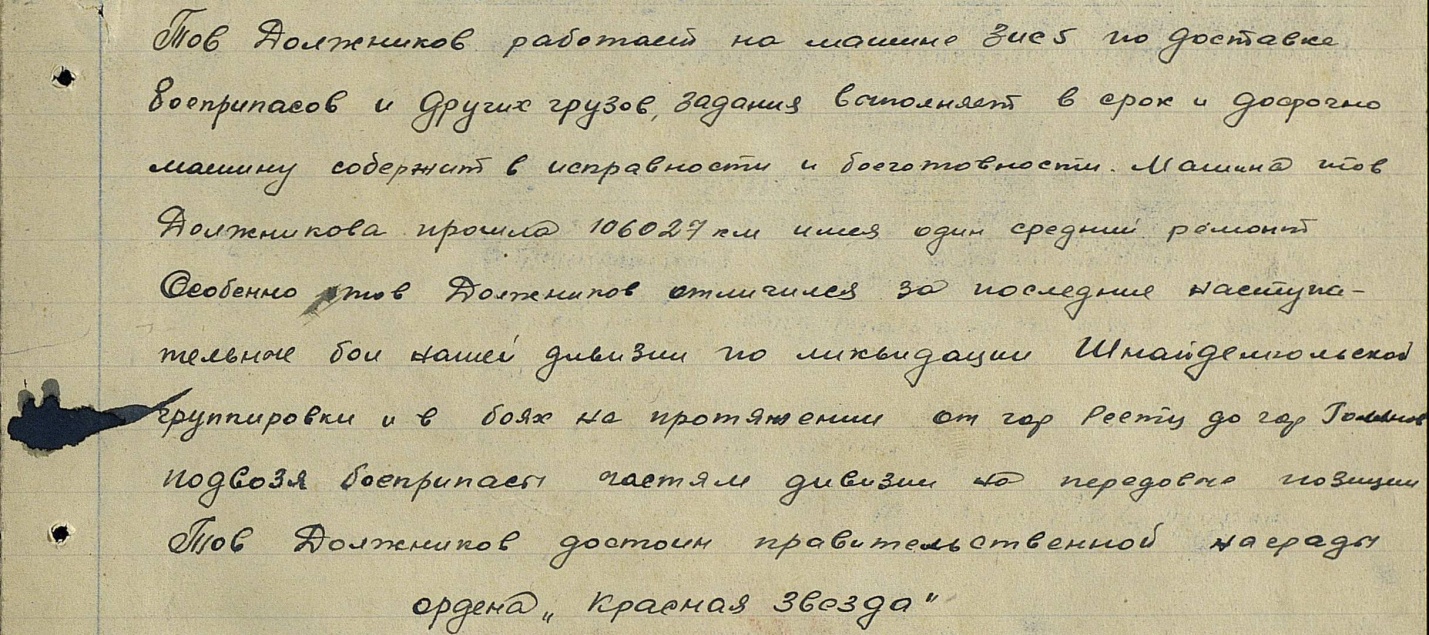 Тов Должников работает на машине Зис5 по доставке
боеприпасов и других грузов, задания выполняет в срок и досрочно
машину содержит в исправности и боеготовности. Машина тов
Должникова прошла 106027 км имея один средний ремонт
Особенно тов Должников отличился за последние наступа-
тельные бои нашей дивизии по ликвидации Шнайдемюльской
группировки и в боях на протяжении от гор Реетц до гор Голынов
подвозя боеприпасы частям дивизии на передовые позиции
Тов Должников достоин правительственной награды
ордена „Красная Звезда"